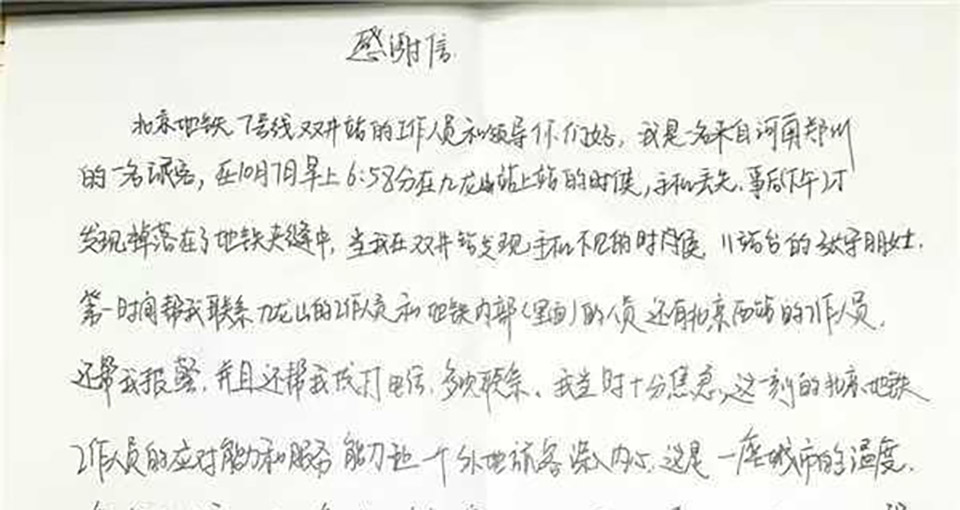 感谢信
北京地铁7号线双井站的工作人员和领导你们好，我是一名来自河南郑州
的一名旅客，在10月7日早上6:58分在九龙山站上站的时候，手机丢失.事后下午2时
发现掉落在了地铁夹缝中，当我在双井站发现手机不见的时候，站台的女士.
第一时间帮我联系九龙山的工作人员和地铁内部(里面)的人员还有北京西站的工作人员.
还帮我报警.并且还帮我拨打电话.多次联系、我当时十分焦急，这一刻的北京地铁
工作人员的应对能力和服务能力让一个外地旅客深入内心.这是一座城市的温度.